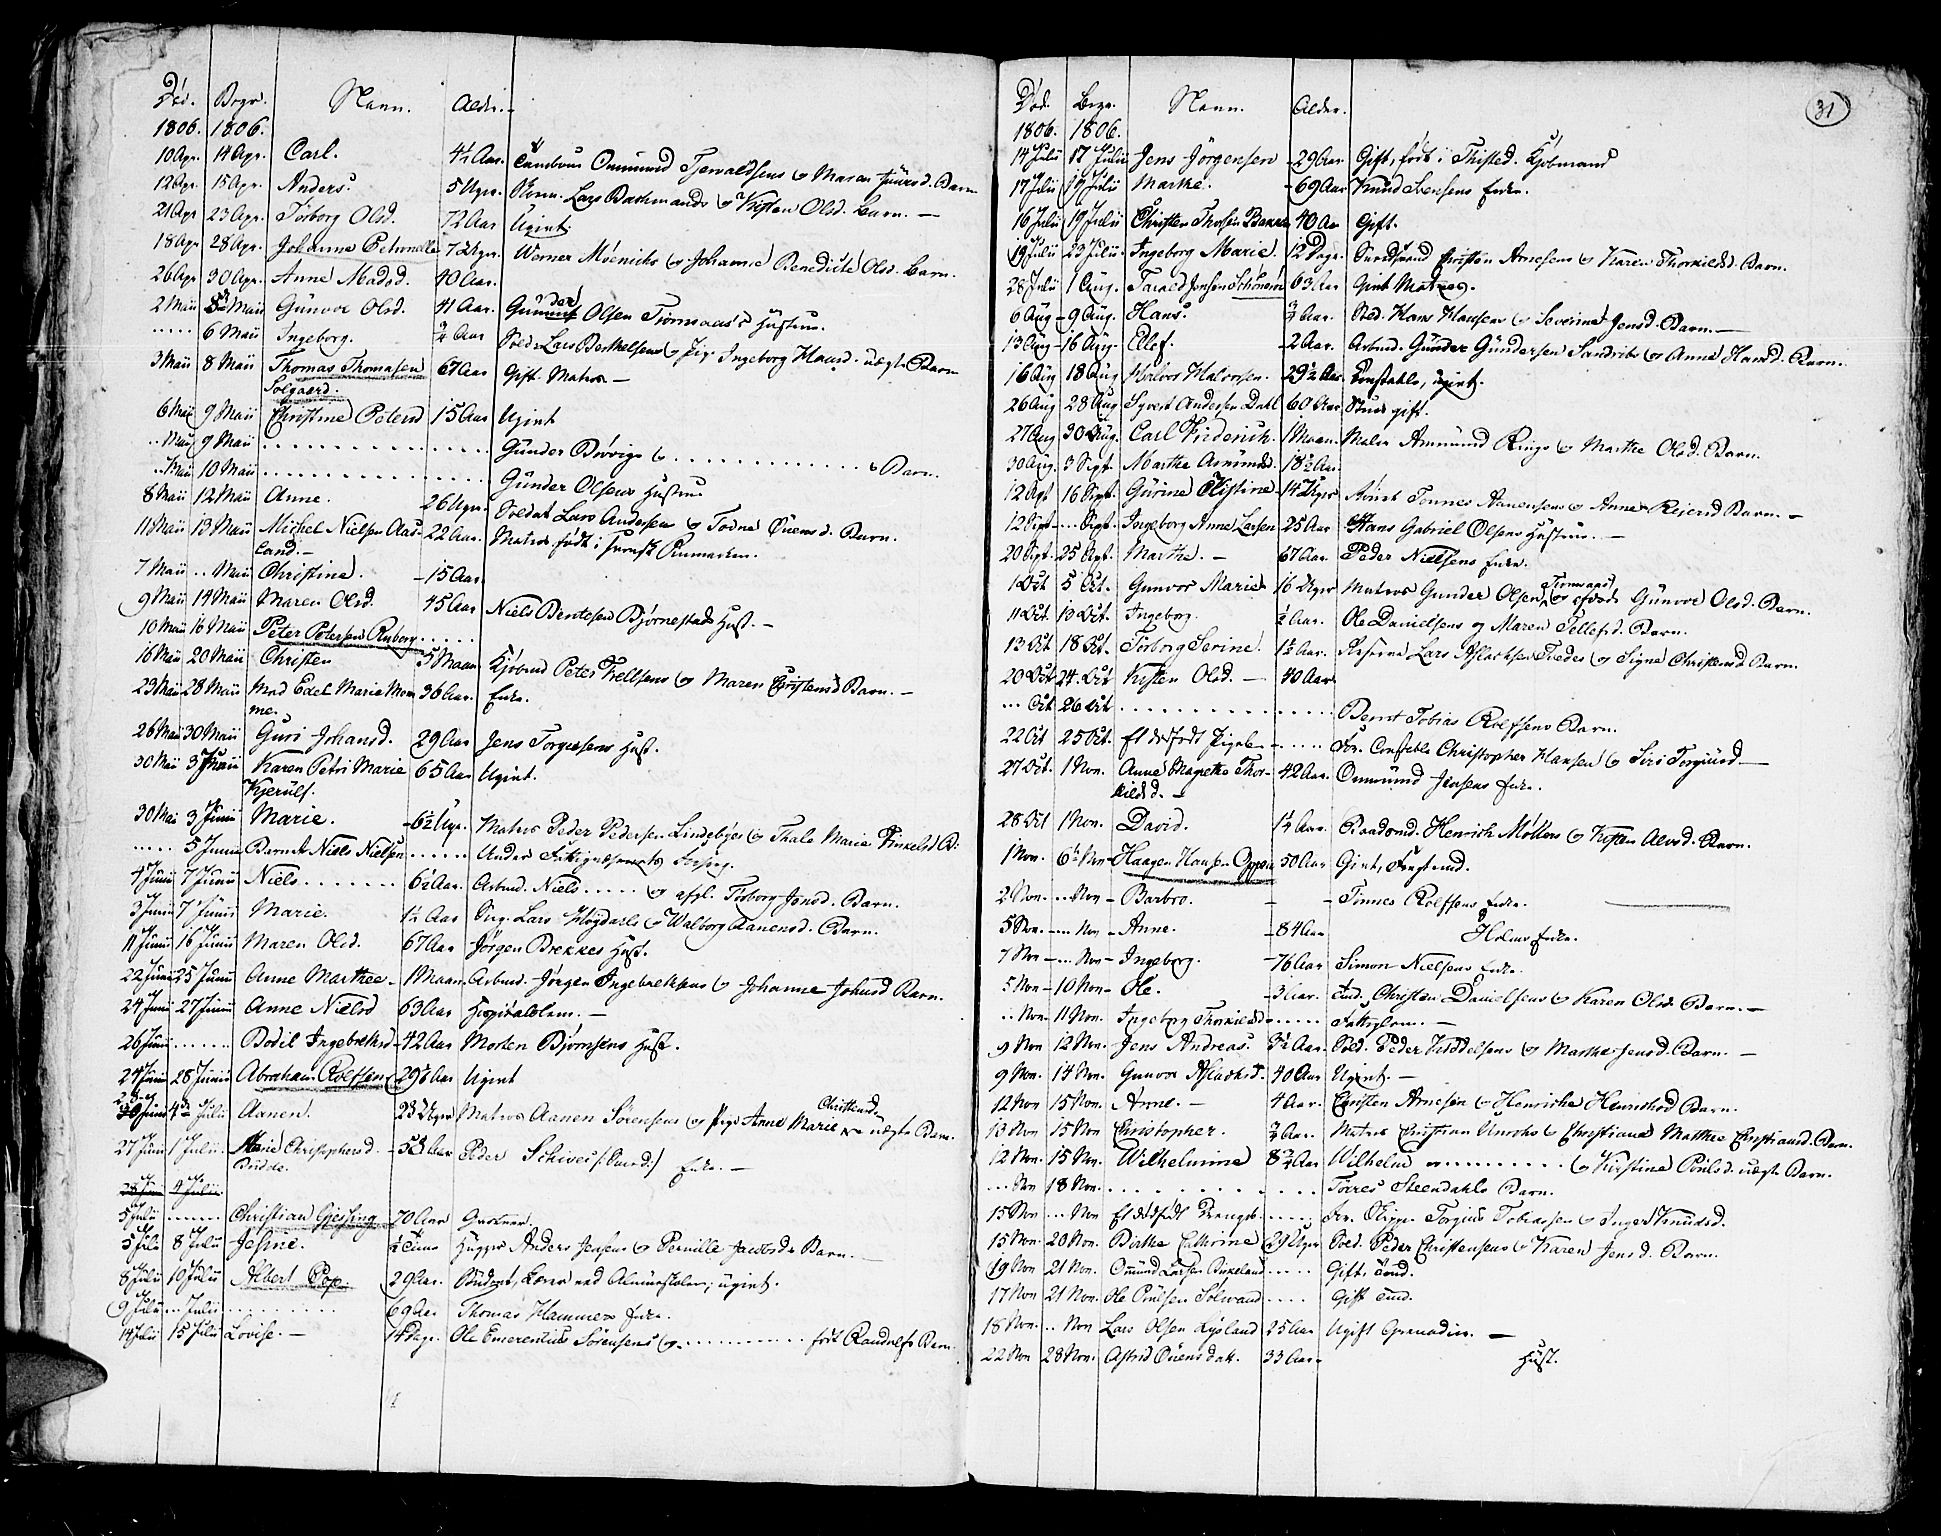 Død. Begr. Navn. Alder.
1806. 1806.
10 Apr. 14 Apr. Carl. 4½ Aar. Tambour Ommund Tjervaldsens og Maren Barn
12 Apr. 15 Apr. Anders. 5 Uger. Lars Bachmands og Kisten Olsd. Barn. —
21 Apr 23 Apr. Tørborg Olsd. 72 Aar Ugivt
18 Apr 28 Apr. Johanne Petronelle 7 Uger. Werner Møenichs og Johanne Benedicte Olsd. Barn.
26 Apr 30 Apr. Anne Madsd. 40 Aar.
2 Maii Maii Gunvor Olsd. 41 Aar. Gunder Olsen Tromaas's Hustrue.
..... 6 Maii Ingeborg. ¾ Aar Sold. Lars Berthelsens og Pige Ingeborg Hansd. uægte Barn
3 Maii 8 Maii Thomas Thomasen 67 Aar Gift Matros —
Solgaard.
6 Maii 9 Maii Christine Petersd 15 Aar Ugivt
.. Maii 9 Maii ........ ..... Gunder Bøvigs og ........ Barn.
.. Maii 10 Maii ........ ..... Gunder Olsens Hustrue
8 Maii 12 Maii Anne. 26 Uger. Soldat Lars Andersens og Todne Ouensd. Barn.
11 Maii 13 Maii Michel Nielsen Aas- 22 Aar. Matros født i
land. —
7 Maii .. Maii Christine. 15 Aar.
9 Maii 14 Maii Maren Olsd. 45 Aar Niels Berntsen Bjørnestads Hust. —
10 Maii 16 Maii Peter Petersen Ryborg .....
16 Maii 20 Maii Christen 5 Maan Kjøbmd Peter Thellsens og Maren Christensd Barn. —
23 Maii 28 Maii Mad Edel Marie Mom 36 Aar. Enke.
me.
26 Maii 30 Maii Guri Johansd. 29 Aar Jens Torgersens Hust.
30 Maii 3 Junii Karen Petri Marie 65 Aar Ugivt.
Kjerulf.
30 Mai 3 Junii Marie. 6½ Uger. Matros Peder Pedersen Lindebyes og Thale Marie Barn
..... 5 Junii Barnet Niels Nielsen ..... Under Fattigvæsenets Forsørg.
4 Junii 7 Junii Niels ....... 6½ Aar. Arbmd. Niels ..... og afgl. Tørborg Jonsd. Barn.
3 Junii 7 Junii Marie. 1½ Aar Lars Høydahls og Walborg Aanensd. Barn.
11 Junii 16 Junii Maren Olsd. 67 Aar Jørgen Brekkes Hust.
22 Junii 25 Junii Anne Marthee 1 Maan. Arbmd. Jørgen Ingebrethsens og Johanne Johnsd Barn.
24 Junii 27 Junii Anne Nielsd 63 Aar Hospitalslem. —
26 Junii ...... Bodil Ingebrethsd 42 Aar Morten Bjørnsens Hust.
24 Junii 28 Junii Abraham Roelfsen 29½ Aar Ugivt
30 Junii 4de Julii Aanen. 23 Uger Matros Aanen Sørensens og Pige Anne Marie Christensd. uægte Barn.
27 Junii 1 Julii Marie Christophersd 53 Aar Peder Schives Enke. —
Budde.
28 Juni 4 Julii
5 Julii ...... Christian Gjessing 70 Aar Gartner.
5 Julii 8 Julii Jesine. ½ Time Hugger Anders Jensens og Pernille Jacobsd. Barn.
8 Julii 10 Julii Albert Pop. 29 Aar. Student, Lærer ved Almueskolen, ugivt.
9 Julii ... Julii ........ 69 Aar Thomas Hammer Enke.
14 Julii 15 Julii Lovise. — 14 Dge. Ole Emerentius Sørensens og ........ født Raudulfs Barn.
31
Død. Begr. Navn. Alder.
1806. 1806.
14 Julii 17 Julii Jens Jörgensen 29 Aar Gift, født i Thisted. Kjøbmand
17 Julii 19 Julii Marthe. 69 Aar Knud Svensens Enke.
16 Julii 19 Julii Christen Thorsen Bakken 40 Aar Gift.
19 Julii 23 Julii Ingeborg Marie. 12 Dage. Christen Arnesens og Karen Thorkildsd. Barn.
28 Julii 1 Aug. Tarald Jensen 63 Aar Givt Matros.
6 Aug 9 Aug. Hans. ¾ Aar. Sold. Hans Hansens og Severine Jensd. Barn. —
13 Aug 16 Aug Ellef. 2 Aar. Arbmd. Gunder Gundersen Sandvihs og Anne Hansd. Barn.
16 Aug 18 Aug Halvor Halvorsen. 29½ Aar. Constable, ugivt.
26 Aug 28 Aug Syvert Andersen Dahl 60 Aar gift.
27 Aug 30 Aug. Carl Friderich. 1 Maan. Maler Ammund Rings og Marthe Olsd. Barn.
30 Aug. 3 Sept. Marthe Asmundsd. 18½ Aar
12 Sept 16 Sept. Gurine Kistine 14 Uger Tønnes Aanensens og Anne Reiersd Barn. —
12 Sept ... Sept. Ingeborg Anne Larsen 25 Aar Hans Gabriel Olsens Hustrue. —
20 Sept. 25 Sept. Marthe. — 67 Aar Peder Nielsens Enke.
1 Oct 5 Oct. Gunvor Marie 16 Uger Matros Gunder Olsen Tromaas og Gunvor Olsd. Barn.
11 Oct. 13 Oct. Ingeborg. ½ Aar. Ole Danielsens og Maren Tellefsd. Barn.
13 Oct 18 Oct. Tørborg Serine. 1½ Aar. Lars Aslachsen Tvedes og Signe Christensd. Barn.
20 Oct 24. Oct Kisten Olsd. — 40 Aar
... Oct 26 Oct ........ Bernt Tobias Roelfsens Barn.
22 Oct 25 Oct. Et dødfødt Pigeb. ..... For. Constable Christopher Hansen og Siri Torgiusd. —
27 Oct. 1 Nov. Anne Magrethe Thor- 42 Aar. Ommund Jensens Enke.
kildsd. —
28 Oct 1 Nov. David. 1½ Aar. Baadsmd. Henrich Møllers og Kisten Alvsd. Barn.
1 Nov. 6te Nov Haagen Hansen Oppen 50 Aar Givt,
2 Nov. ... Nov Barbro. — Tønnes Roelfsens Enke.
5 Nov. ... Nov Anne. 84 Aar Holms Enke.
7 Nov ... Nov Ingeborg. 76 Aar Simon Nielsens Enke.
5 Nov 10 Nov Ole. 3 Aar. Christen Danielsens og Karen Olsd. Barn. —
.. Nov 11 Nov. Ingeborg Thorkildsd ..... Fattiglem. —
9 Nov 12 Nov. Jens Andreas. 3½ Aar. Sold. Peder Kiddelsens og Marthe Jensd. Barn. —
9 Nov. 14 Nov. Gunvor Aslachsd. 40 Aar Ugivt. —
12 Nov 15 Nov. Anne. — 4 Aar. Christen Arnesen og Henriche Henrichsd Barn.
13 Nov 15 Nov Christopher. ¾ Aar. Matros Christian Unrohs og Christiane Mathea Christiansd. Barn.
12 Nov. 15 Nov. Wilhelmine 8¾ Aar Wilhelm ........ og Kirstine Povlsd. uægte Barn.
... Nov 18 Nov. ........ Torres Steendahls Barn.
15 Nov ... Nov Et dødfødt Drengeb. ..... For. Skipp. Torgius Tobiassen og Inger Knudsd.
15 Nov. 20 Nov. Birthe Cathrine 29 Uger Sold. Peder Christensens og Karen Jensd. Barn.
19 Nov 21 Nov. Omund Larsen Birkeland ..... Gift,
17 Nov 21 Nov. Ole Povlsen Solvand .... Gift
18 Nov. .. Nov Lars Olsen Lysland 25 Aar Ugift Grenadier. —
22 Nov 28 Nov. Astrid Ouensdatt. 33 Aar Hust.